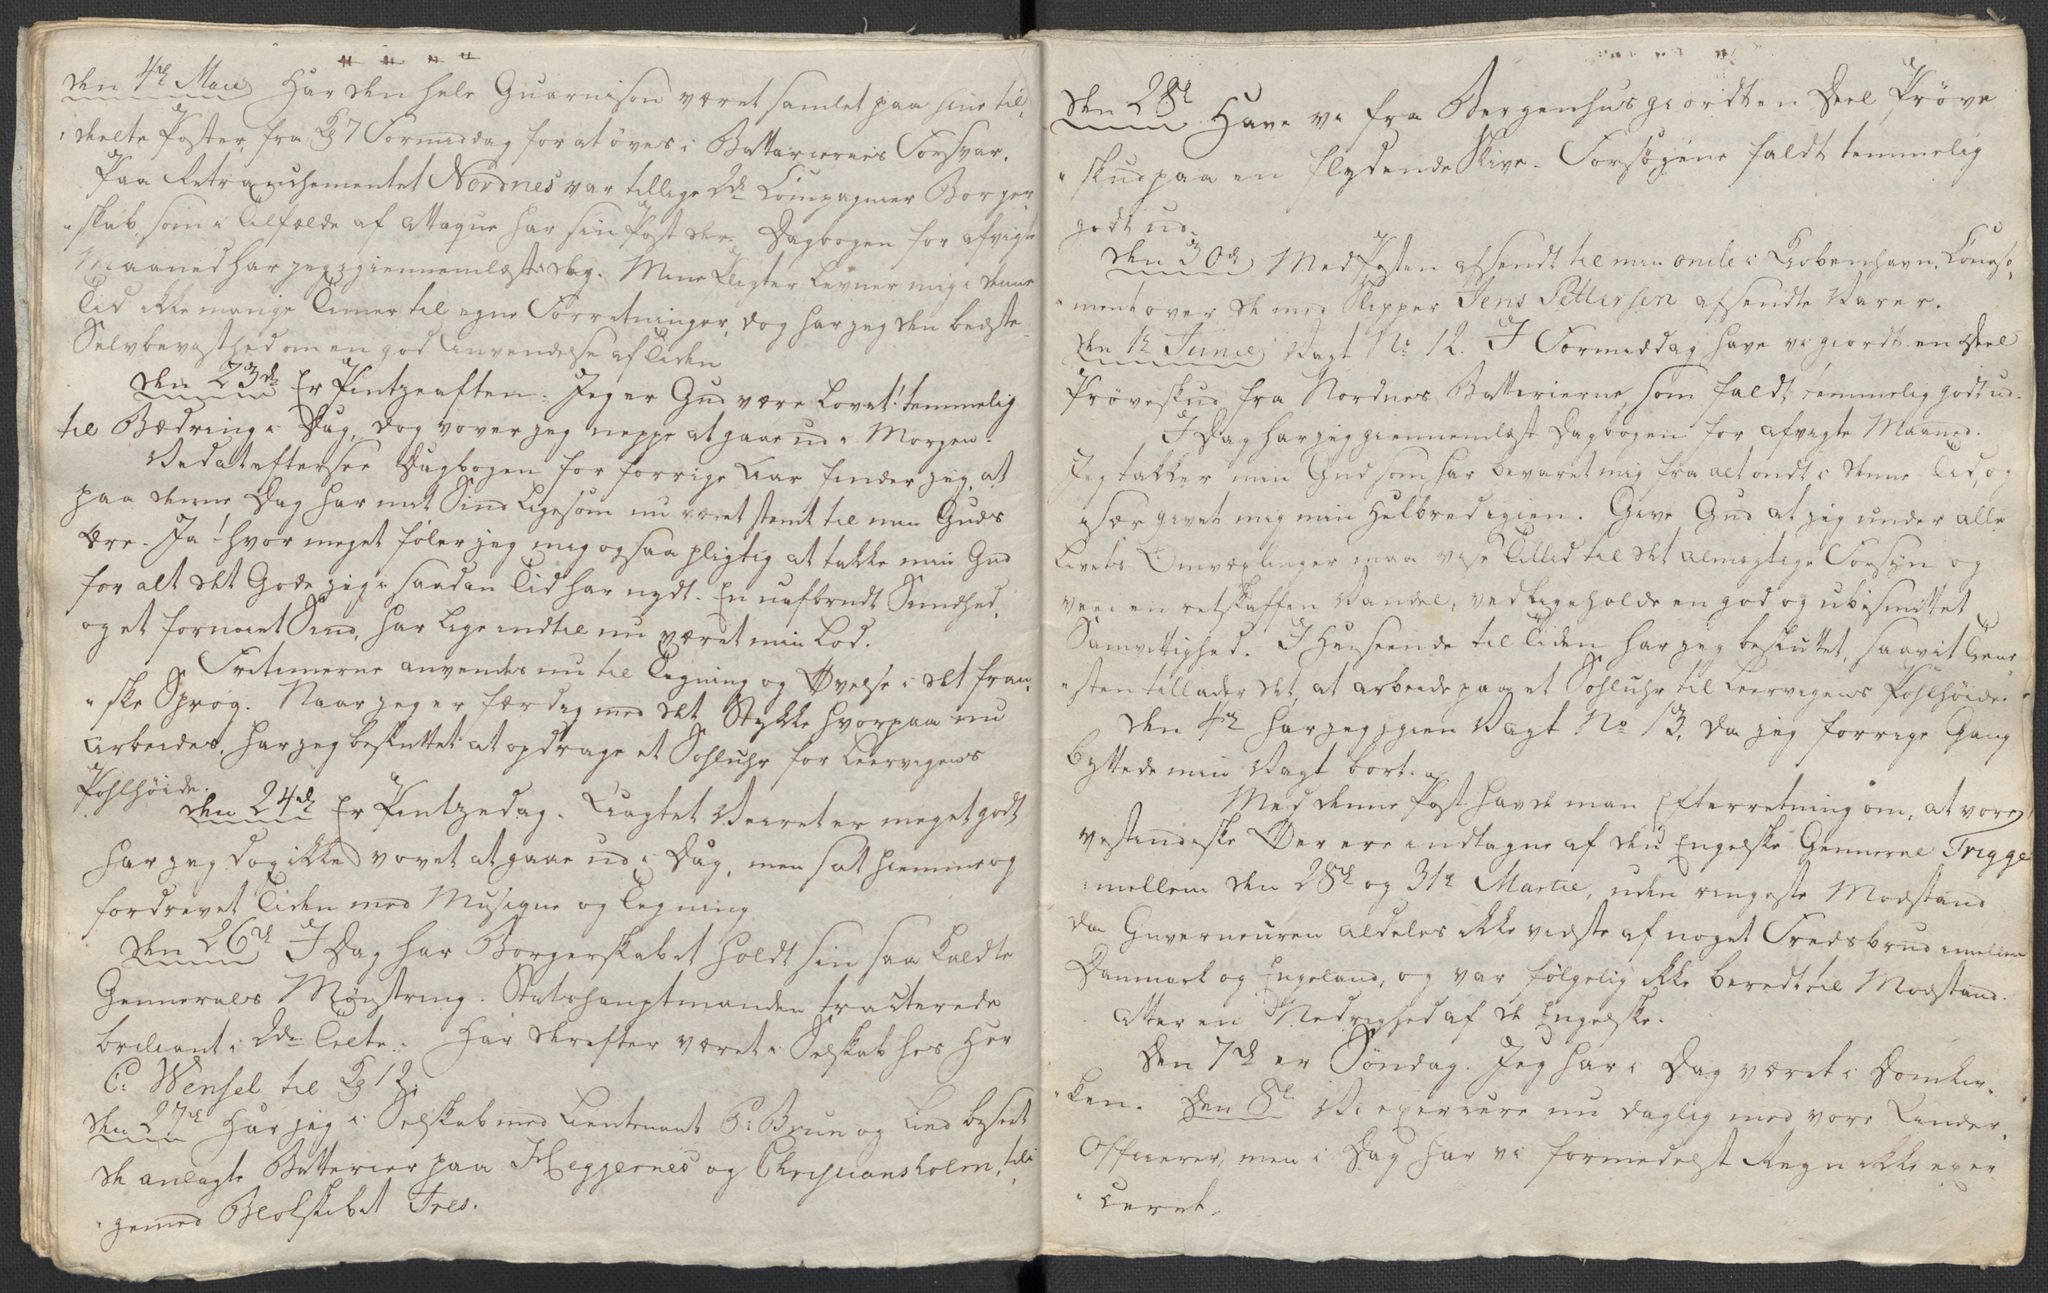 den 4de Maii Har den hele Guarnison været samlet paa sine til-
deelte Poster fra Kl 7 Formiddag for at øves i Battariernes Forsvar.
Paa Retranchementet Nordnes var tillige 2de Compagnier Borger
skab, som i Tilfælde af Attaque har sin Post der. Dagbogen for afvigte
Maaned har jeg giennemlæst i dag. Mine Pligter levner mig i denne
Tid ikke mange Timer til egne Forretninger, dog har jeg den bedste
Selvbevisthed om en god Anvendelse af Tiden
den 23de Er Pintzeaften. Jeg er Gud være lovet! temmelig
til Bædring i Dag, dog vover jeg neppe at gaae ud i Morgen.
Ved at eftersee Dagbogen for forrige Aar finder jeg, at
paa denne Dag har mit Sind ligesom nu været stemt til min Guds
Ære. Ja! hvor meget føler jeg mig ogsaa pligtig at takke min Gud
for alt det Gode jeg i saadan Tid har nydt. En uafbrudt Sundhed,
og et fornøiet Sind, har lige indtil nu været min Lod.
Fritimerne anvendes nu til Tegning og Øvelse i det fran-
ske Sprog. Naar jeg er færdig med det Stykke hvorpaa nu
arbeides, har jeg besluttet at opdrage et Sohluhr for Leervigens
Pohlhöide.
den 24de Er Pintzedag. Uagtet Veiret er meget godt
har jeg dog ikke vovet at gaae ud i Dag, men sat hiemme og
fordrevet Tiden med Musique og Tegning
den 26de I Dag har Borgerskabet holdt sin saa kaldte
Gennerals Mønstring. Stadshauptmanden tracterede
briliant i 2de Telte. Har derefter været i Selskab hos Hr
C: Wensel til Kl 12.
den 27de Har jeg i Selskab med Lieutenant P: Brun og Lind beseet
de anlagte Batterier paa Heggernes og Christiansholm, tili-
gemed Blokskibet Tres.
den 28de Have vi fra Bergenhus giordt en Deel Prøve
skud paa en flydende Skive. Forsøgene faldt temmelig
godt ud.
den 30de Med Posten afsendt til min Onde i Kiøbenhavn, Conoso-
ment over de med Skipper Jens Pettersen afsendte Varer.
den 1te Junii Vagt No 12. I Formiddag have vi giordt en Deel
Prøveskud fra Nordnes Batterierne, som faldt temmelig godt ud.
I Dag har jeg giennemlæst Dagbogen for afvigte Maaned.
Jeg takker min Gud som har bevaret mig fra alt ondt i denne Tid, og
især givet mig min Helbred igien. Give Gud at jeg under alle
Livets Omvexlinger maa vise Tillid til det almægtige Forsyn og
ved en retskaffen Vandel, vedligeholde en god og ubesmittet
Samvittighed. I Henseende til Tiden har jeg besluttet, saavit Tjene-
sten tillader det, at arbeide paa et Sohluhr til Leervigens Pohlhöide.
den 4de har jeg igien Vagt No 13, da jeg forrige Gang
byttede min Vagt bort.
Med denne Post havde man Efterretning om, at vore
vestindiske Øer ere indtagne af den Engelske General Trigge
imellem den 28de og 31te Martii, uden ringeste Modstand
da Guverneuren aldeles ikke vidste af noget Fredsbrud imellem
Danmark og Engeland, og var følgelig ikke beredt til Modstand.
Atter en Nedrighed af de Engelske.
Den 7de er Søndag. Jeg har i Dag været i Domkir-
ken. Den 8de Vi exercere nu daglig med vore Under-
Officerer, men i Dag har vi formedelst Regn ikke exer
ceret.